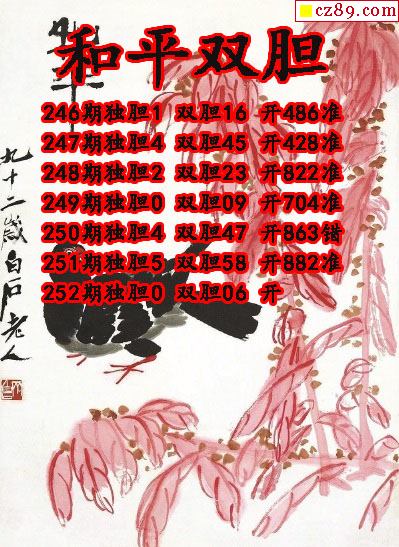 cz89.com
和平双胆
246期独胆1 双胆16 开486准
247期独胆4 双胆45 开428准
248期独胆2 双胆23 开822准
249期独胆0 双胆09 开704准
250期独胆4 双胆47 开863错
251期独胆5 双胆58 开882准
252期独胆0 双胆06 开
和平
九十二岁白石老人